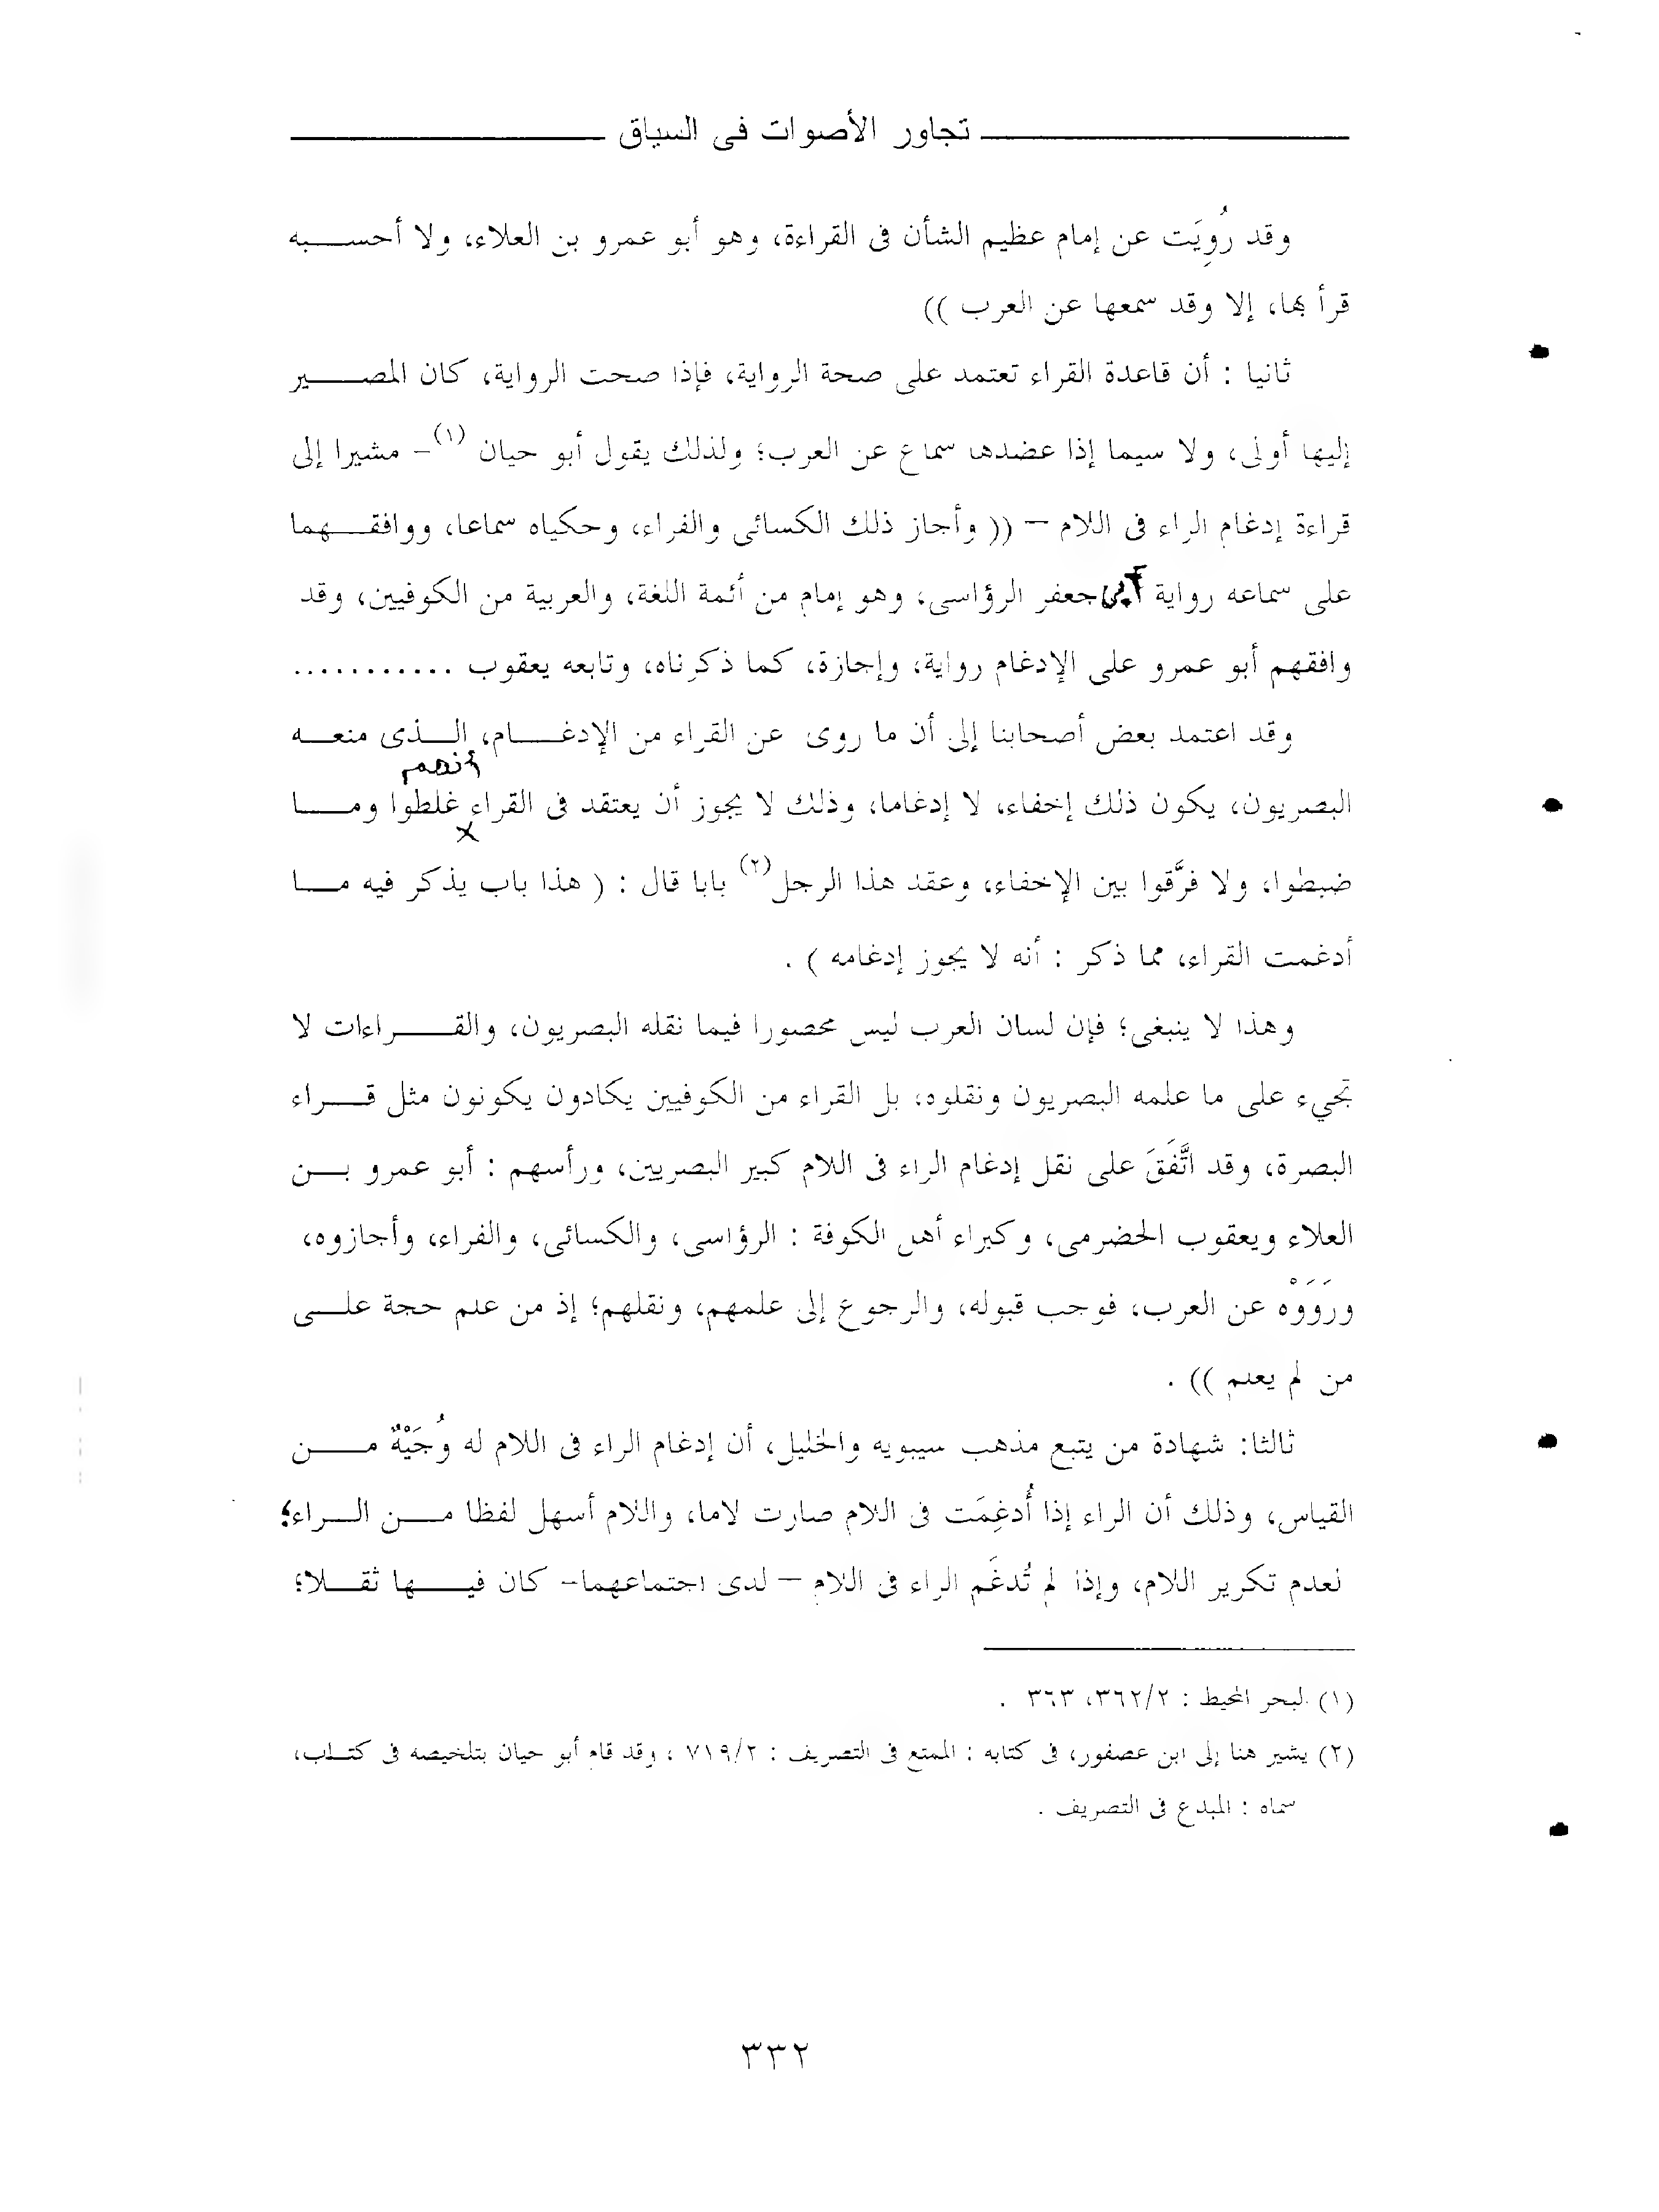 تجاور الأصوات فى السياق
وقد رُوِيَت عن إمام عظيم الشأن فى القراءة، وهو أبو عمرو بن العلاء، ولا أحسبه
قرأ بها، إلا وقد سمعها عن العرب ))
ثانيا : أن قاعدة القراء تعتمد على صحة الرواية، فإذا صحت الرواية، كان المصير
إليها أولى، ولا سيما إذا عضدها سماع عن العرب؛ ولذلك يقول أبو حيان (١)– مشيرا إلى
قراءة إدغام الراء فى اللام – (( وأجاز ذلك الكسائى والفراء، وحكياه سماعا، ووافقهما
على سماعه رواية أبى جعفر الرؤاسى، وهو إمام من أئمة اللغة، والعربية من الكوفيين، وقد
وافقهم أبو عمرو على الإدغام رواية، وإجازة، كما ذكرناه، وتابعه يعقوب ...........
وقد اعتمد بعض أصحابنا إلى أن ما روى عن القراء من الإدغام، الذى منعه
أنهم
البصريون، يكون ذلك إخفاء، لا إدغاما، وذلك لا يجوز أن يعتقد فى القراء غلطوا وما
ضبطوا، ولا فرَّقوا بين الإخفاء، وعقد هذا الرجل(٢) بابا قال : ( هذا باب يذكر فيه ما
أدغمت القراء، مما ذكر : أنه لا يجوز إدغامه ) .
وهذا لا ينبغى؛ فإن لسان العرب ليس محصورا فيما نقله البصريون، والقراءات لا
تجيء على ما علمه البصريون ونقلوه، بل القراء من الكوفيين يكادون يكونون مثل قراء
البصرة، وقد اتَّفَقَ على نقل إدغام الراء فى اللام كبير البصريين، ورأسهم : أبو عمرو بن
العلاء ويعقوب الحضرمى، وكبراء أهل الكوفة : الرؤاسى، والكسائى، والفراء، وأجازوه،
ورَوَوْه عن العرب، فوجب قبوله، والرجوع إلى علمهم، ونقلهم؛ إذ من علم حجة على
من لم يعلم )) .
ثالثا: شهادة من يتبع مذهب سيبويه والخليل، أن إدغام الراء فى اللام له وُجَيْهٌ من
القياس، وذلك أن الراء إذا أُدغِمَت فى اللام صارت لاما، واللام أسهل لفظا من الراء؛
لعدم تكرير اللام، وإذا لم تُدغَم الراء فى اللام – لدى اجتماعهما– كان فيها ثقلا؛
(١) البحر المحيط : ٣٦٢/٢، ٣٦٣ .
(٢) يشير هنا إلى ابن عصفور، فى كتابه : الممتع فى التصريف : ٧١٩/٢ ، وقد قام أبو حيان بتلخيصه فى كتاب،
سماه : المبدع فى التصريف .
٣٣٢